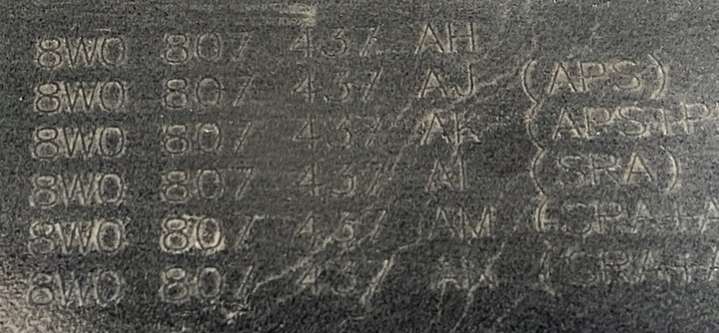 8W0 807 437 AH
8W0 807 437 AJ (APS)
8W0 807 437 AK (APS+P
8W0 807 437 (SRA)
8W0 807 437 AM (SRA+A
8W0 807 437 (SRA+A